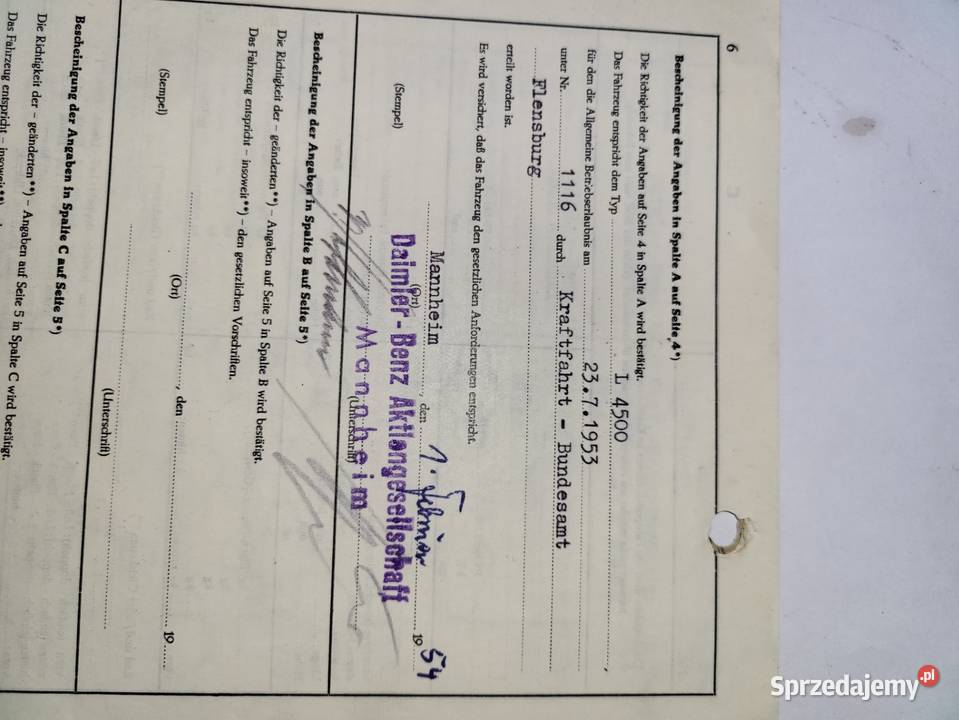 6
Bescheinigung der Angaben in Spalte A auf Seite 4*)
Die Richtigkeit der Angaben auf Seite 4 in Spalte A wird bestätigt.
Das Fahrzeug entspricht dem Typ L 4500
für den die Allgemeine Betriebserlaubnis am 23.7.1953
unter Nr. 1116 durch Kraftfahrt - Bundesamt
Flensburg
erteilt worden ist.
Es wird versichert, daß das Fahrzeug den gesetzlichen Anforderungen entspricht.
Mannheim, den 1. Februar 1954
(Stempel) (Ort)
Daimler-Benz Aktiengesellschaft
Mannheim
(Unterschrift)
Bescheinigung der Angaben in Spalte B auf Seite 5*)
Die Richtigkeit der – geänderten**) – Angaben auf Seite 5 in Spalte B wird bestätigt.
Das Fahrzeug entspricht – insoweit**) – den gesetzlichen Vorschriften.
, den 19
(Stempel) (Ort)
(Unterschrift)
Bescheinigung der Angaben in Spalte C auf Seite 5*)
Die Richtigkeit der – geänderten**) – Angaben auf Seite 5 in Spalte C wird bestätigt.
Das Fahrzeug entspricht – insoweit**)
Sprzedajemy.pl